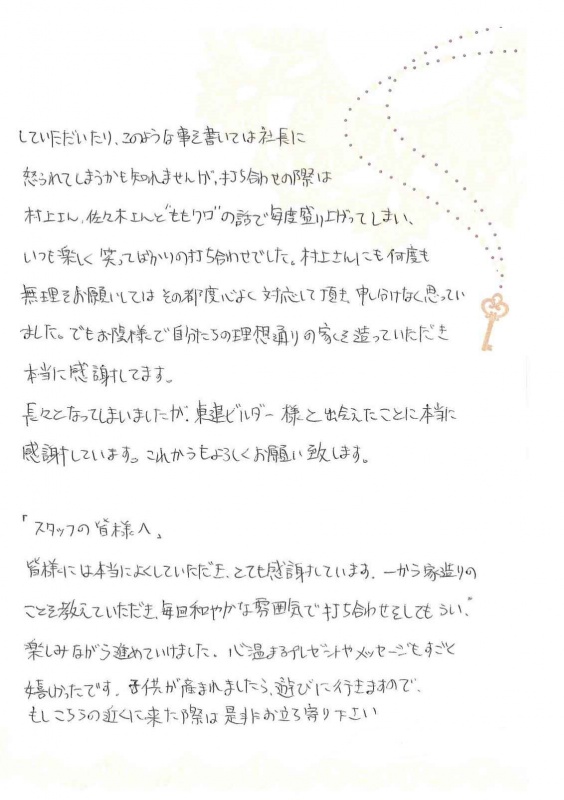 していただいたり、このような事を書いては社長に
怒られてしまうかも知れませんが、打ち合わせの際は
村上さん、佐々木さんと"ももクロ"の話で毎度盛り上がってしまい、
いつも楽しく笑ってばかりの打ち合わせでした。村上さんにも何度も
無理をお願いしてはその都度心よく対応して頂き、申し分けなく思ってい
ました。でもお陰様で自分たちの理想通りの家を造っていただき
本当に感謝してます。
長々となってしまいましたが、東進ビルダー様と出会えたことに本当に
感謝しています。これからもよろしくお願い致します。
「スタッフの皆様へ」
皆様には本当によくしていただき、とても感謝しています。一から家造りの
ことを教えていただき、毎回和やかな雰囲気で打ち合わせをしてもらい、
楽しみながら進めていけました。心温まるプレゼントやメッセージもすごく
嬉しかったです。子供が産まれましたら、遊びに行きますので、
もしこちらの近くに来た際は是非お立ち寄り下さい